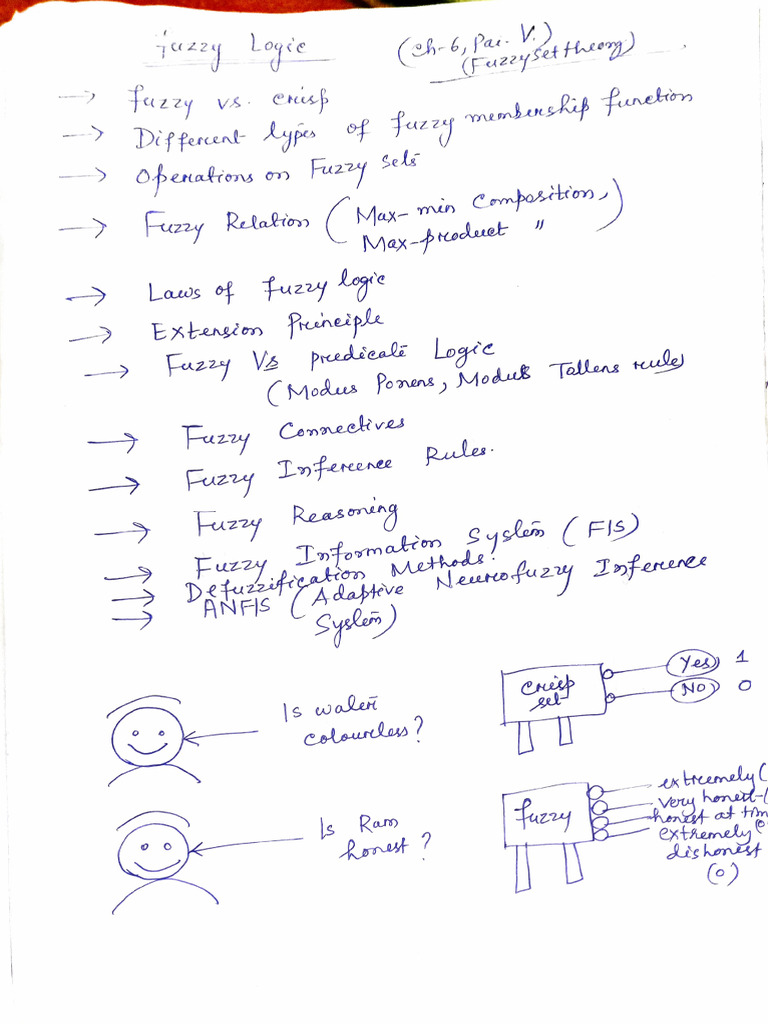 Fuzzy Logic (Ch-6, Pai. V.)
(Fuzzy set theory)
→ fuzzy vs. crisp
→ Different types of fuzzy membership function
→ Operations on Fuzzy sets
→ Fuzzy Relation (Max-min Composition,
Max-product ")
→ Laws of fuzzy logic
→ Extension Principle
→ Fuzzy Vs predicate Logic
(Modus Ponens, Modus Tallens rule)
→ Fuzzy Connectives
→ Fuzzy Inference Rules.
→ Fuzzy Reasoning
→ Fuzzy Information System (FIS)
→ Defuzzification Methods.
→ ANFIS (Adaptive Neurofuzzy Inference
System)
Is water
colourless?
crisp
set
Yes 1
NO 0
Is Ram
honest?
fuzzy
extremely (
very honest (
honest at
extremely
dishonest
(0)